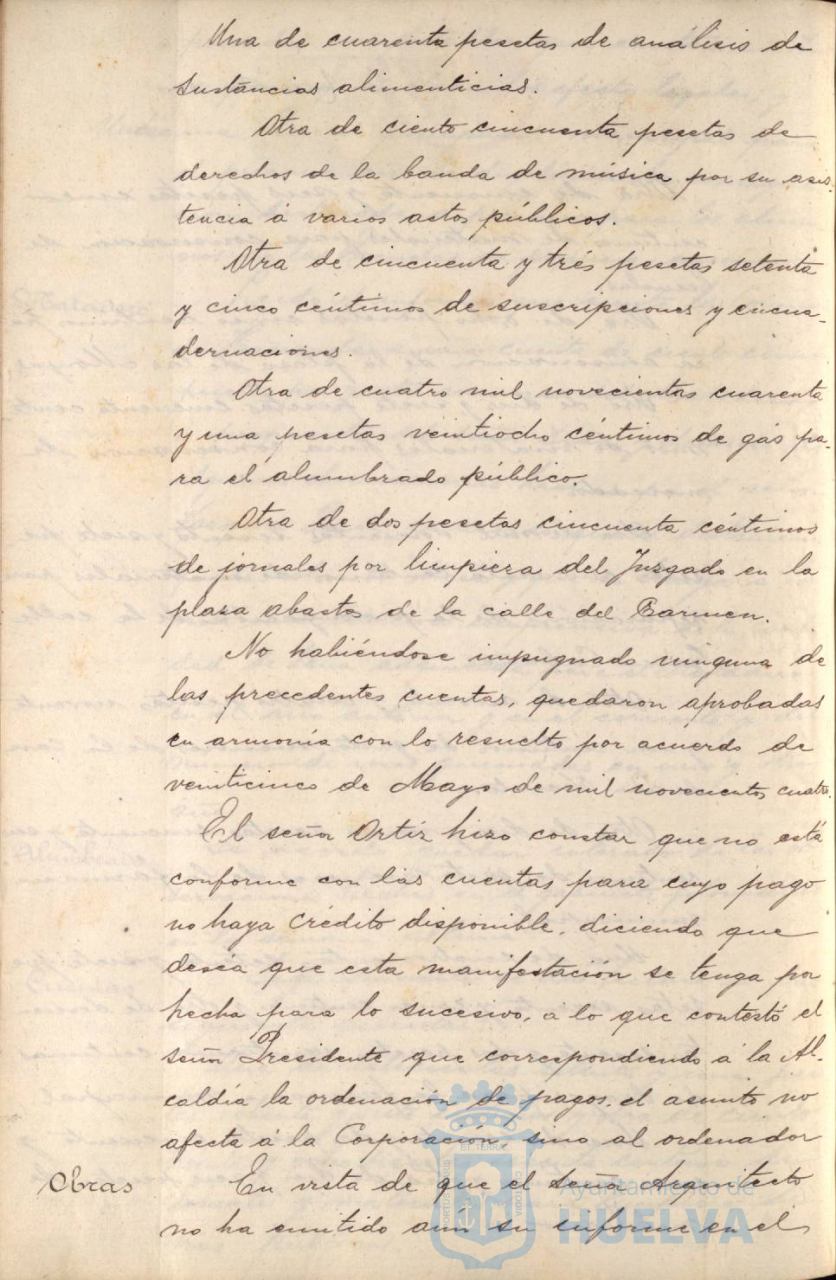 Una de cuarenta pesetas de análisis de
sustancias alimenticias.
Otra de ciento cincuenta pesetas de
derechos de la banda de música por su asis-
tencia á varios actos públicos.
Otra de cincuenta y trés pesetas setenta
y cinco céntimos de suscripciones y encua-
dernaciones.
Otra de cuatro mil novecientas cuarenta
y una pesetas veintiocho céntimos de gás pa-
ra el alumbrado público.
Otra de dos pesetas cincuenta céntimos
de jornales por limpieza del Juzgado en la
plaza abastos de la calle del Carmen.
No habiéndose impugnado ninguna de
las precedentes cuentas, quedaron aprobadas
en armonía con lo resuelto por acuerdo de
veinticinco de Mayo de mil novecientos cuatro.
El señor Ortiz hizo constar que no está
conforme con las cuentas para cuyo pago
no haya crédito disponible, diciendo que
deséa que esta manifestación se tenga por
hecha para lo sucesivo, á lo que contestó el
señor Presidente que correspondiendo á la Al-
caldía la ordenación de pagos, el asunto no
afecta á la Corporación, sino al ordenador
Obras En vista de que el señor Arquitecto
no ha emitido aún su informe en el
Ayuntamiento de
HUELVA